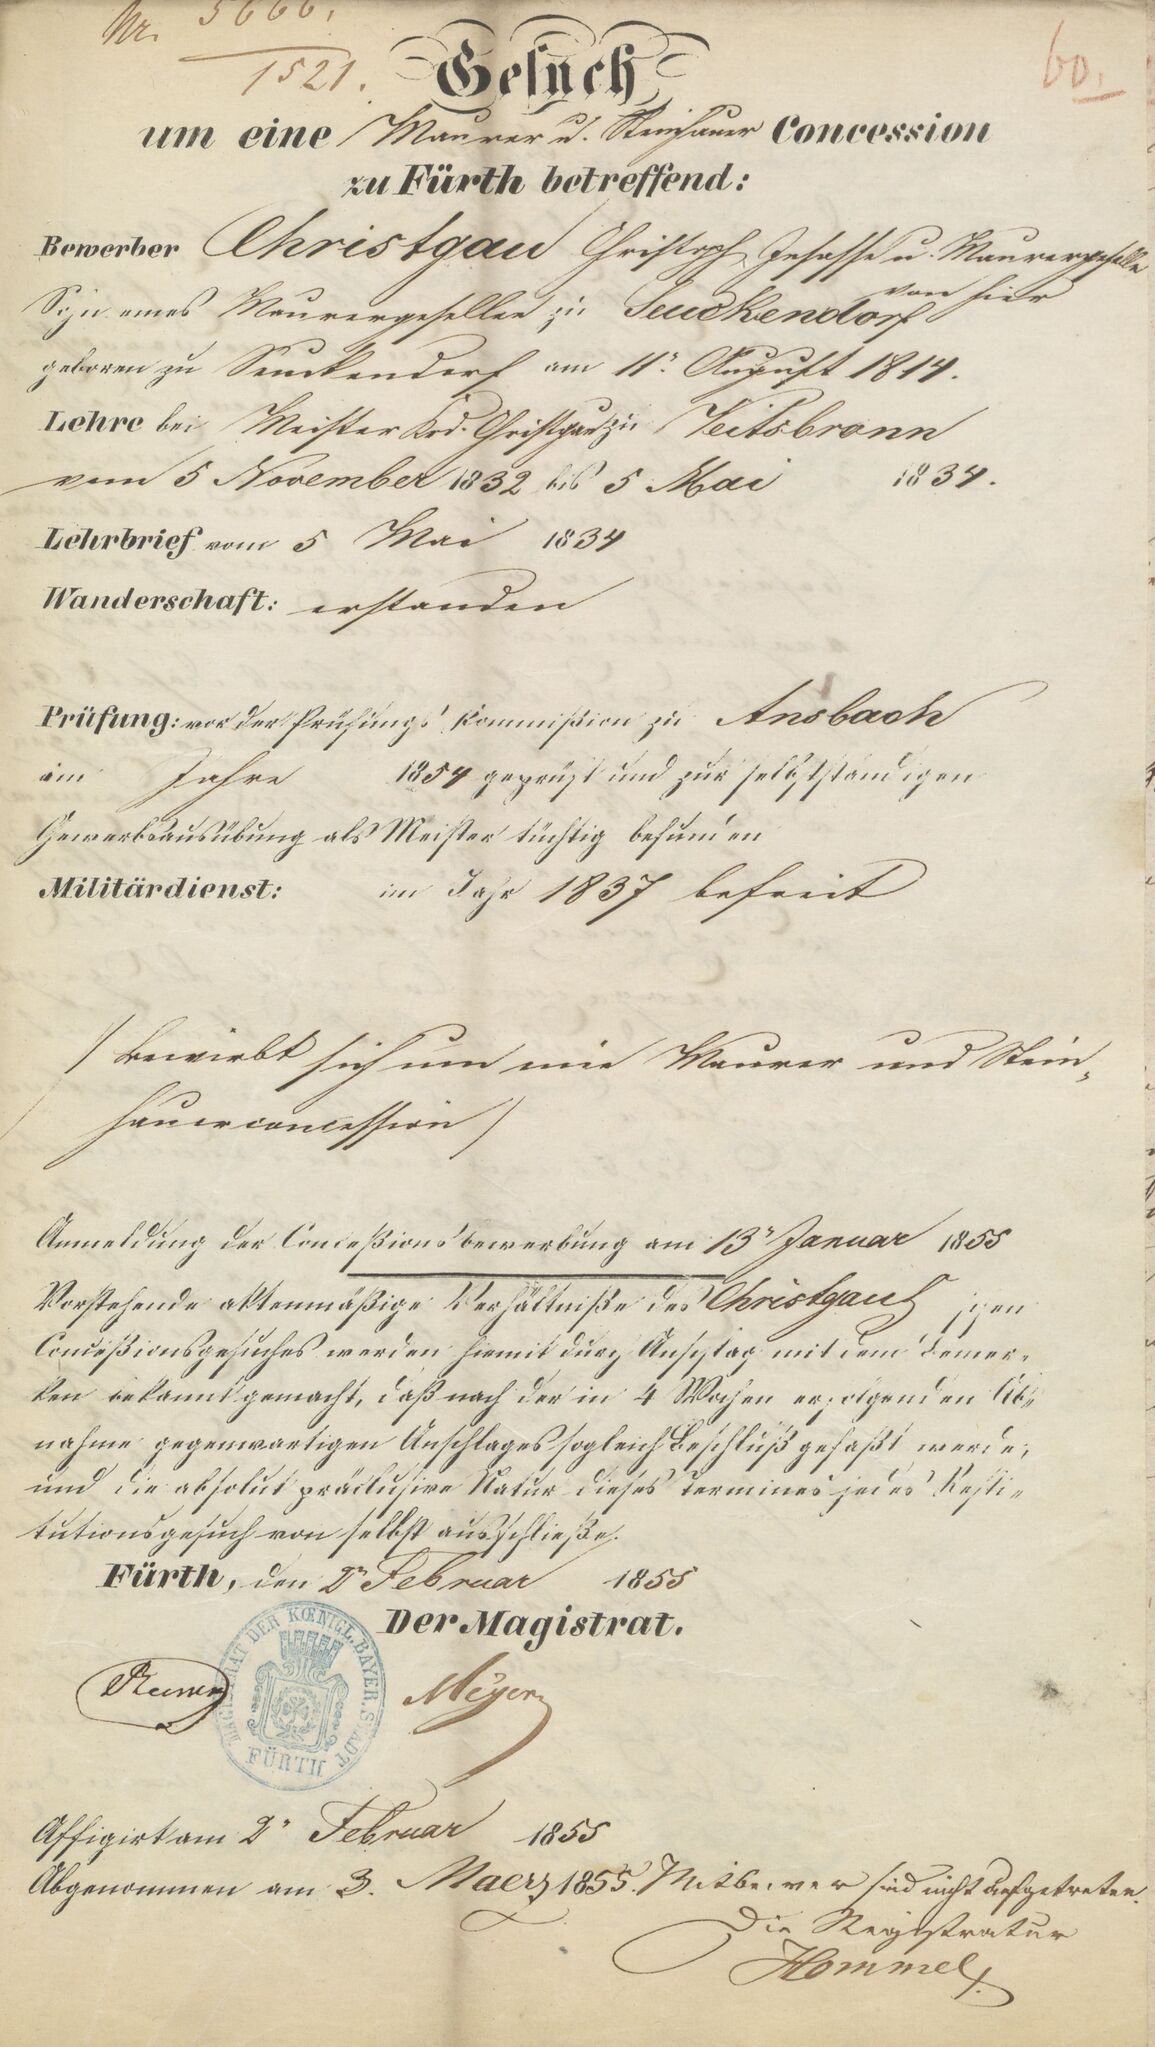 Nr. 5666.
1521.
60.
Gesuch
um eine Maurer u. Steinhauer Concession
zu Fürth betreffend:
Bewerber Christgau Christoph, Insasse u. Maurergeselle
von hier
Sohn eines Maurergesellen zu Seuckendorf
geboren zu Seuckendorf am 11n August 1814.
Lehre bei Meister Christgau zu Veitsbronn
vom 5 November 1832 bis 5 Mai 1834.
Lehrbrief vom 5 Mai 1834
Wanderschaft: erstanden
Prüfung: vor der Prüfungs Kommißion zu Ansbach
im Jahre 1854 geprüft und zur selbstständigen
Gewerbsausübung als Meister tüchtig befunden
Militärdienst: im Jahr 1837 befreit
/ Bewirbt sich um eine Maurer und Stein-
hauerconcession /
Anmeldung der Conceßionsbewerbung am 13n Januar 1855
Vorstehende aktenmäßige Verhältniße des Christgau'schen
Conceßionsgesuches werden hiemit durch Anschlag mit dem Bemer-
ken bekannt gemacht, daß nach der in 4 Wochen erfolgenden Ab-
nahme gegenwaertigen Anschlages sogleich Beschluß gefaßt werde,
und die absolut präclusive Natur dieses Termines jedes Resti-
tutionsgesuch von selbst ausschließe.
Fürth, den 2n Februar 1855
Der Magistrat.
MAGISTRAT DER KOENIGL. BAYER. STADT
FÜRTH
Meyer
Affigirt am 2n Februar 1855
Abgenommen am 3. Maerz 1855. Mitbewerber sind nicht aufgetreten.
Die Registratur
Hommel